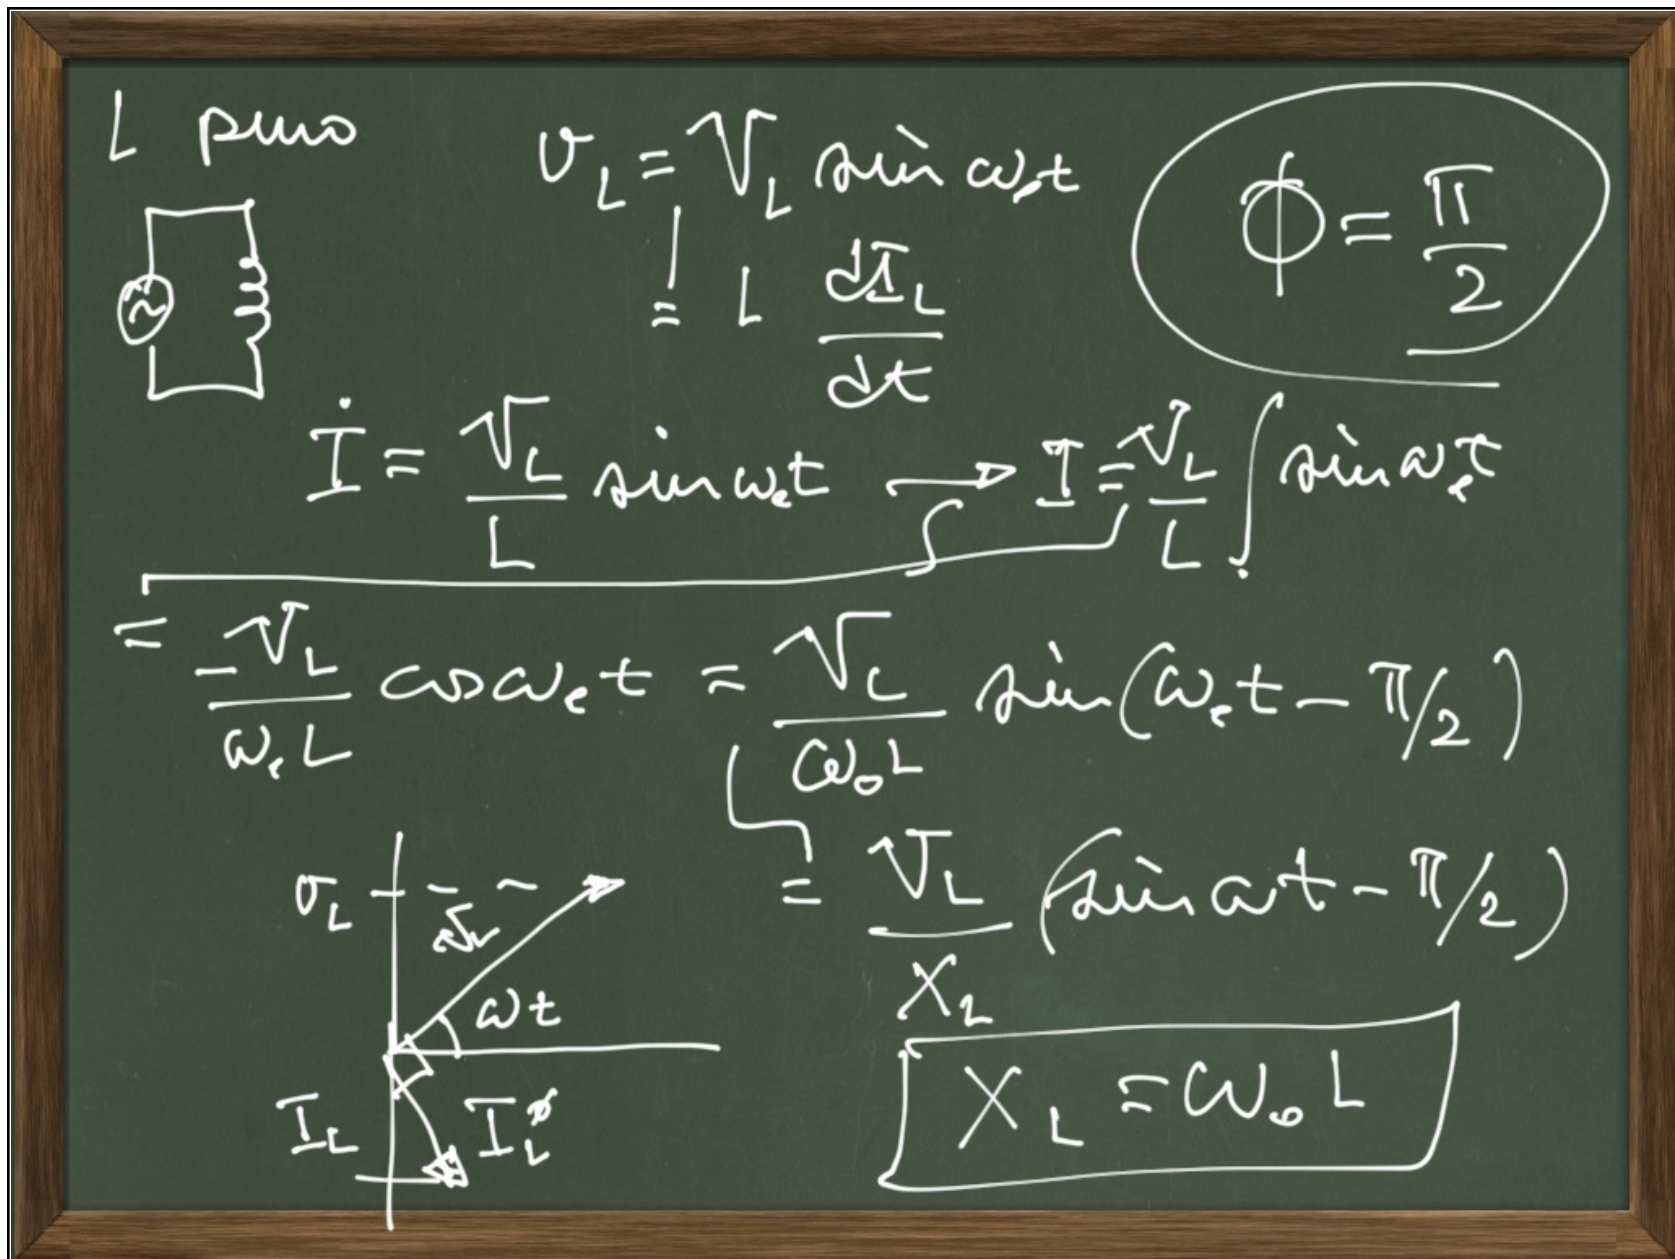 L puro
v_L = V_L sin ω_e t
= L dI_L/dt
ϕ = π/2
İ = V_L/L sin ω_e t → I = V_L/L ∫ sin ω_e t
∫
= -V_L/ω_e L cos ω_e t = V_L/ω_0 L sin(ω_e t - π/2)
= V_L/X_L (sin ωt - π/2)
v_L
V_L
ωt
I_L
X_L = ω_0 L